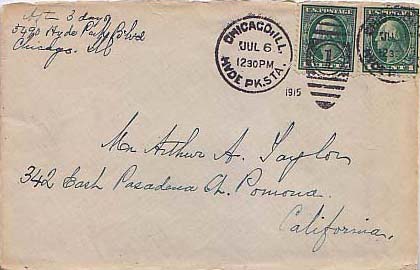 After 3 days
5490 Hyde Park Blvd
Chicago. Ill
CHICAGO, ILL.
JUL 6
1230 PM
HYDE PK. STA.
1915
U.S. POSTAGE
1
Mr Arthur A. Taylor
342 East Pasadena St. Pomona.
California.